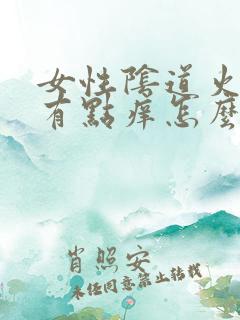 女性陰道火
有點痒怎麼
肖照安
未任同意禁止转载